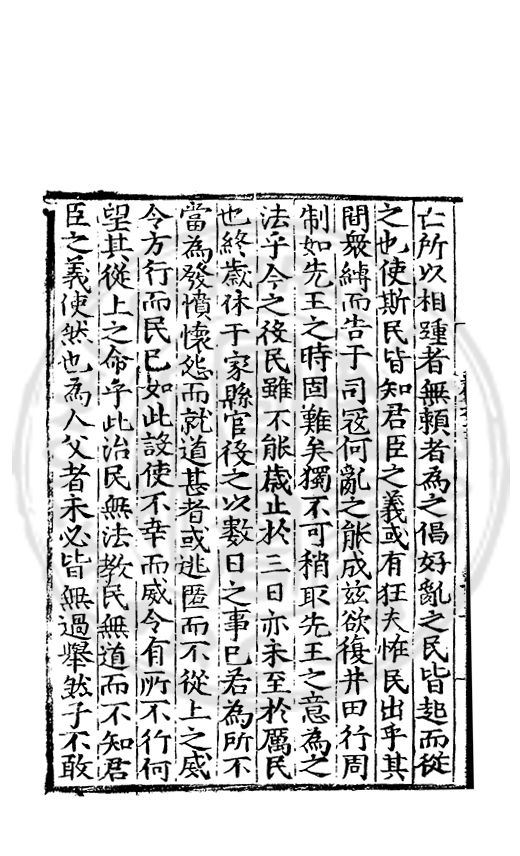 亡所以相踵者無賴者為之倡好亂之民皆起而從
之也使斯民皆知君臣之義或有狂夫恠民出乎其
間衆縛而告于司冦何亂之能成兹欲復井田行周
制如先王之時固難矣獨不可稍取先王之意為之
法乎今之役民雖不能歲止於三日亦未至於厲民
也終歲休于家縣官役之以數日之事巳若為所不
當為發憤懷怨而就道甚者或逃匿而不從上之威
令方行而民巳如此設使不幸而威令有所不行何
望其從上之命乎此治民無法教民無道而不知君
臣之義使然也為人父者未必皆無過舉然子不敢